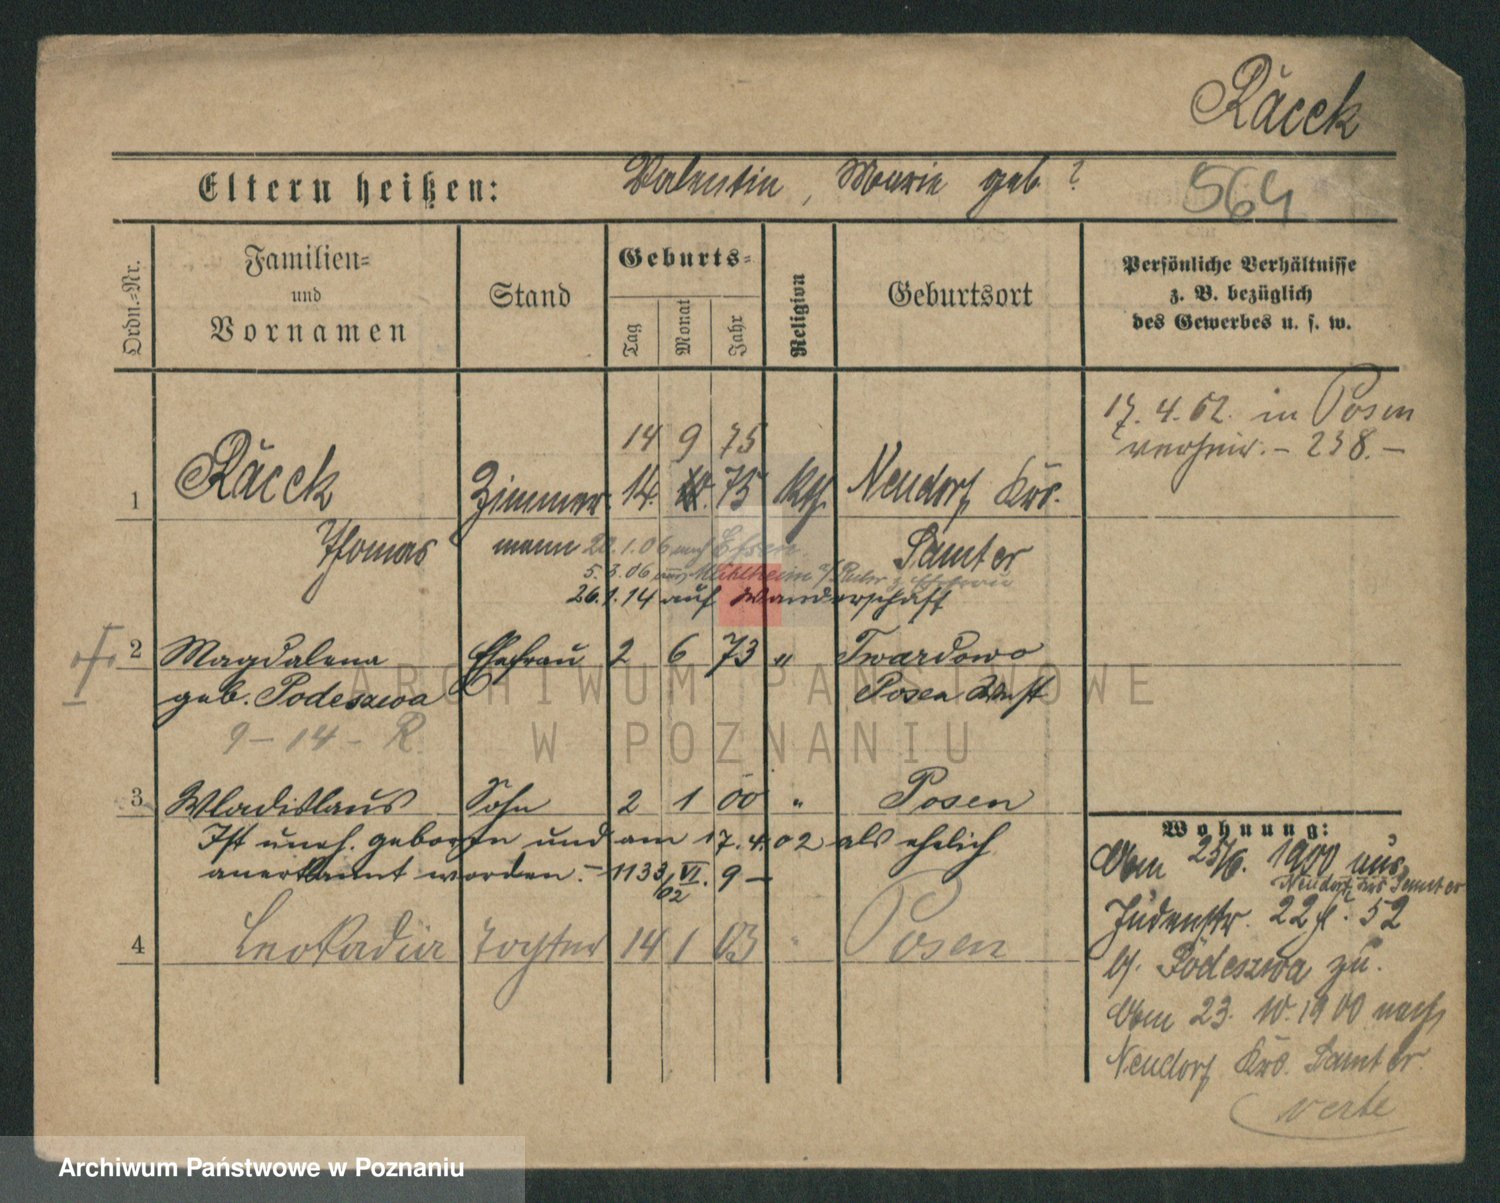 Räcek
Eltern heißen: Valentin, Marie geb ?
564
Ordn.=Nr.
Familien=
und
Vornamen
Stand
Geburts=
Tag
Monat
Jahr
Religion
Geburtsort
Persönliche Verhältnisse
z. B. bezüglich
des Gewerbes u. s. w.
17. 4. 02. in Posen
verheir. – 238. –
14 9 75
1 Räcek Zimmer 14. 75 kth. Neudorf Krs.
Thomas mann 22.1.06 nach Essen Samter
5.3.06 aus Mühlheim a/Ruhr z. Ehefrau
26.1.14 auf Wanderschaft
2 Magdalena Ehefrau 2 6 73 " Twardowo
geb. Podeszwa Posen West
9 – 14 – R
3 Wladislaus Sohn 2 1 00 " Posen
Ist uneh. geboren und am 17.4.02 als ehelich
anerkannt worden. – 1133/02 VI. 9 –
4 Leokadia Tochter 14 1 03 " Posen
Wohnung:
Vom 25/6. 1900 aus
Neudorf Krs Samter
Judenstr. 22 52
b/. Podeszwa zu.
Vom 23. 10. 1900 nach
Neudorf Krs. Samter.
verte
ARCHIWUM PAŃSTWOWE
W POZNANIU
Archiwum Państwowe w Poznaniu